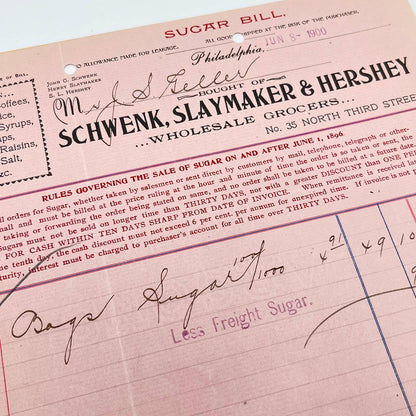 SUGAR BILL.
NO ALLOWANCE MADE FOR LEAKAGE.
ALL GOODS SHIPPED AT THE RISK OF THE PURCHASER.
E OF BILL.
JOHN G. SCHWENK
HENRY SLAYMAKER
S. L. HERSHEY
Philadelphia,
JUN 8- 1900
M J S Geller
BOUGHT OF
SCHWENK, SLAYMAKER & HERSHEY
...WHOLESALE GROCERS...
No. 35 NORTH THIRD STREE
offees,
ice,
Syrups,
ups,
Raisins,
Salt,
zc.
RULES GOVERNING THE SALE OF SUGAR ON AND AFTER JUNE 1, 1896.
ll orders for Sugar, whether taken by salesmen or sent direct by customers by mail, telephone, telegraph or othe
mail and must be billed at the price ruling at the hour and minute of time the order is so taken or sent,
f taking or forwarding the order being stated on same, and no order shall be taken to be billed at a future dat
Sugars must not be sold on longer time than THIRTY DAYS, nor with a greater DISCOUNT than ONE
FOR CASH WITHIN TEN DAYS SHARP FROM DATE OF INVOICE. When remittance is received
he tenth day, the cash discount must not exceed 6 per cent. per annum for unexpired time. If invoice is not
turity, interest must be charged to purchaser's account for all time over THIRTY DAYS.
Bags Sugar 100/1000 4 91 49 10
Less Freight Sugar.